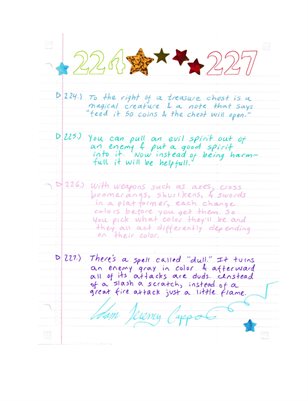 224 227
224.) To the right of a treasure chest is a
magical creature & a note that says
"feed it 50 coins & the chest will open."
225.) You can pull an evil spirit out of
an enemy & put a good spirit
into it. Now instead of being harm-
full it will be helpfull."
226.) With weapons such as axes, cross
boomerangs, shurikens, & swords
in a platformer, each change
colors before you get them. So
you pick what color they'll be and
they all act differently depending
on their color.
227.) There's a spell called "dull." It turns
an enemy gray in color & afterward
all of its attacks are duds. Instead
of a slash a scratch, instead of a
great fire attack just a little flame.
Adam Jeremy Capps